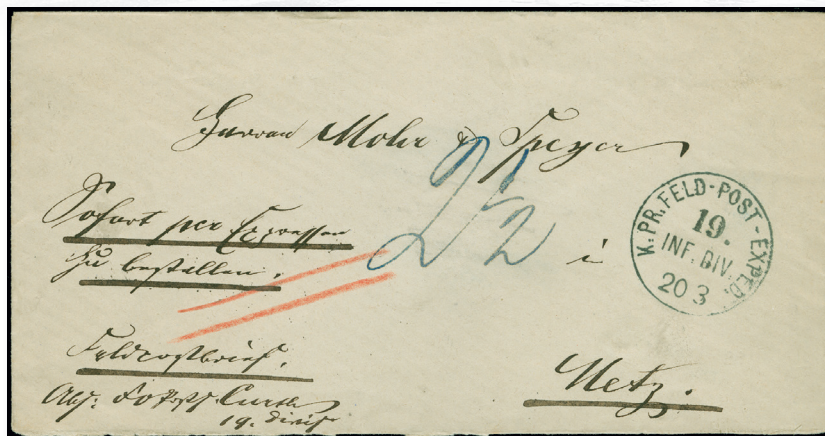 Herren Mohr & Speyer
Sofort per Expressen
zu bestellen.
2½
i
K. PR. FELD-POST-EXPED.
19.
INF. DIV.
20 3
Metz.
Feldpostbrief.
Abs:
19. Divis